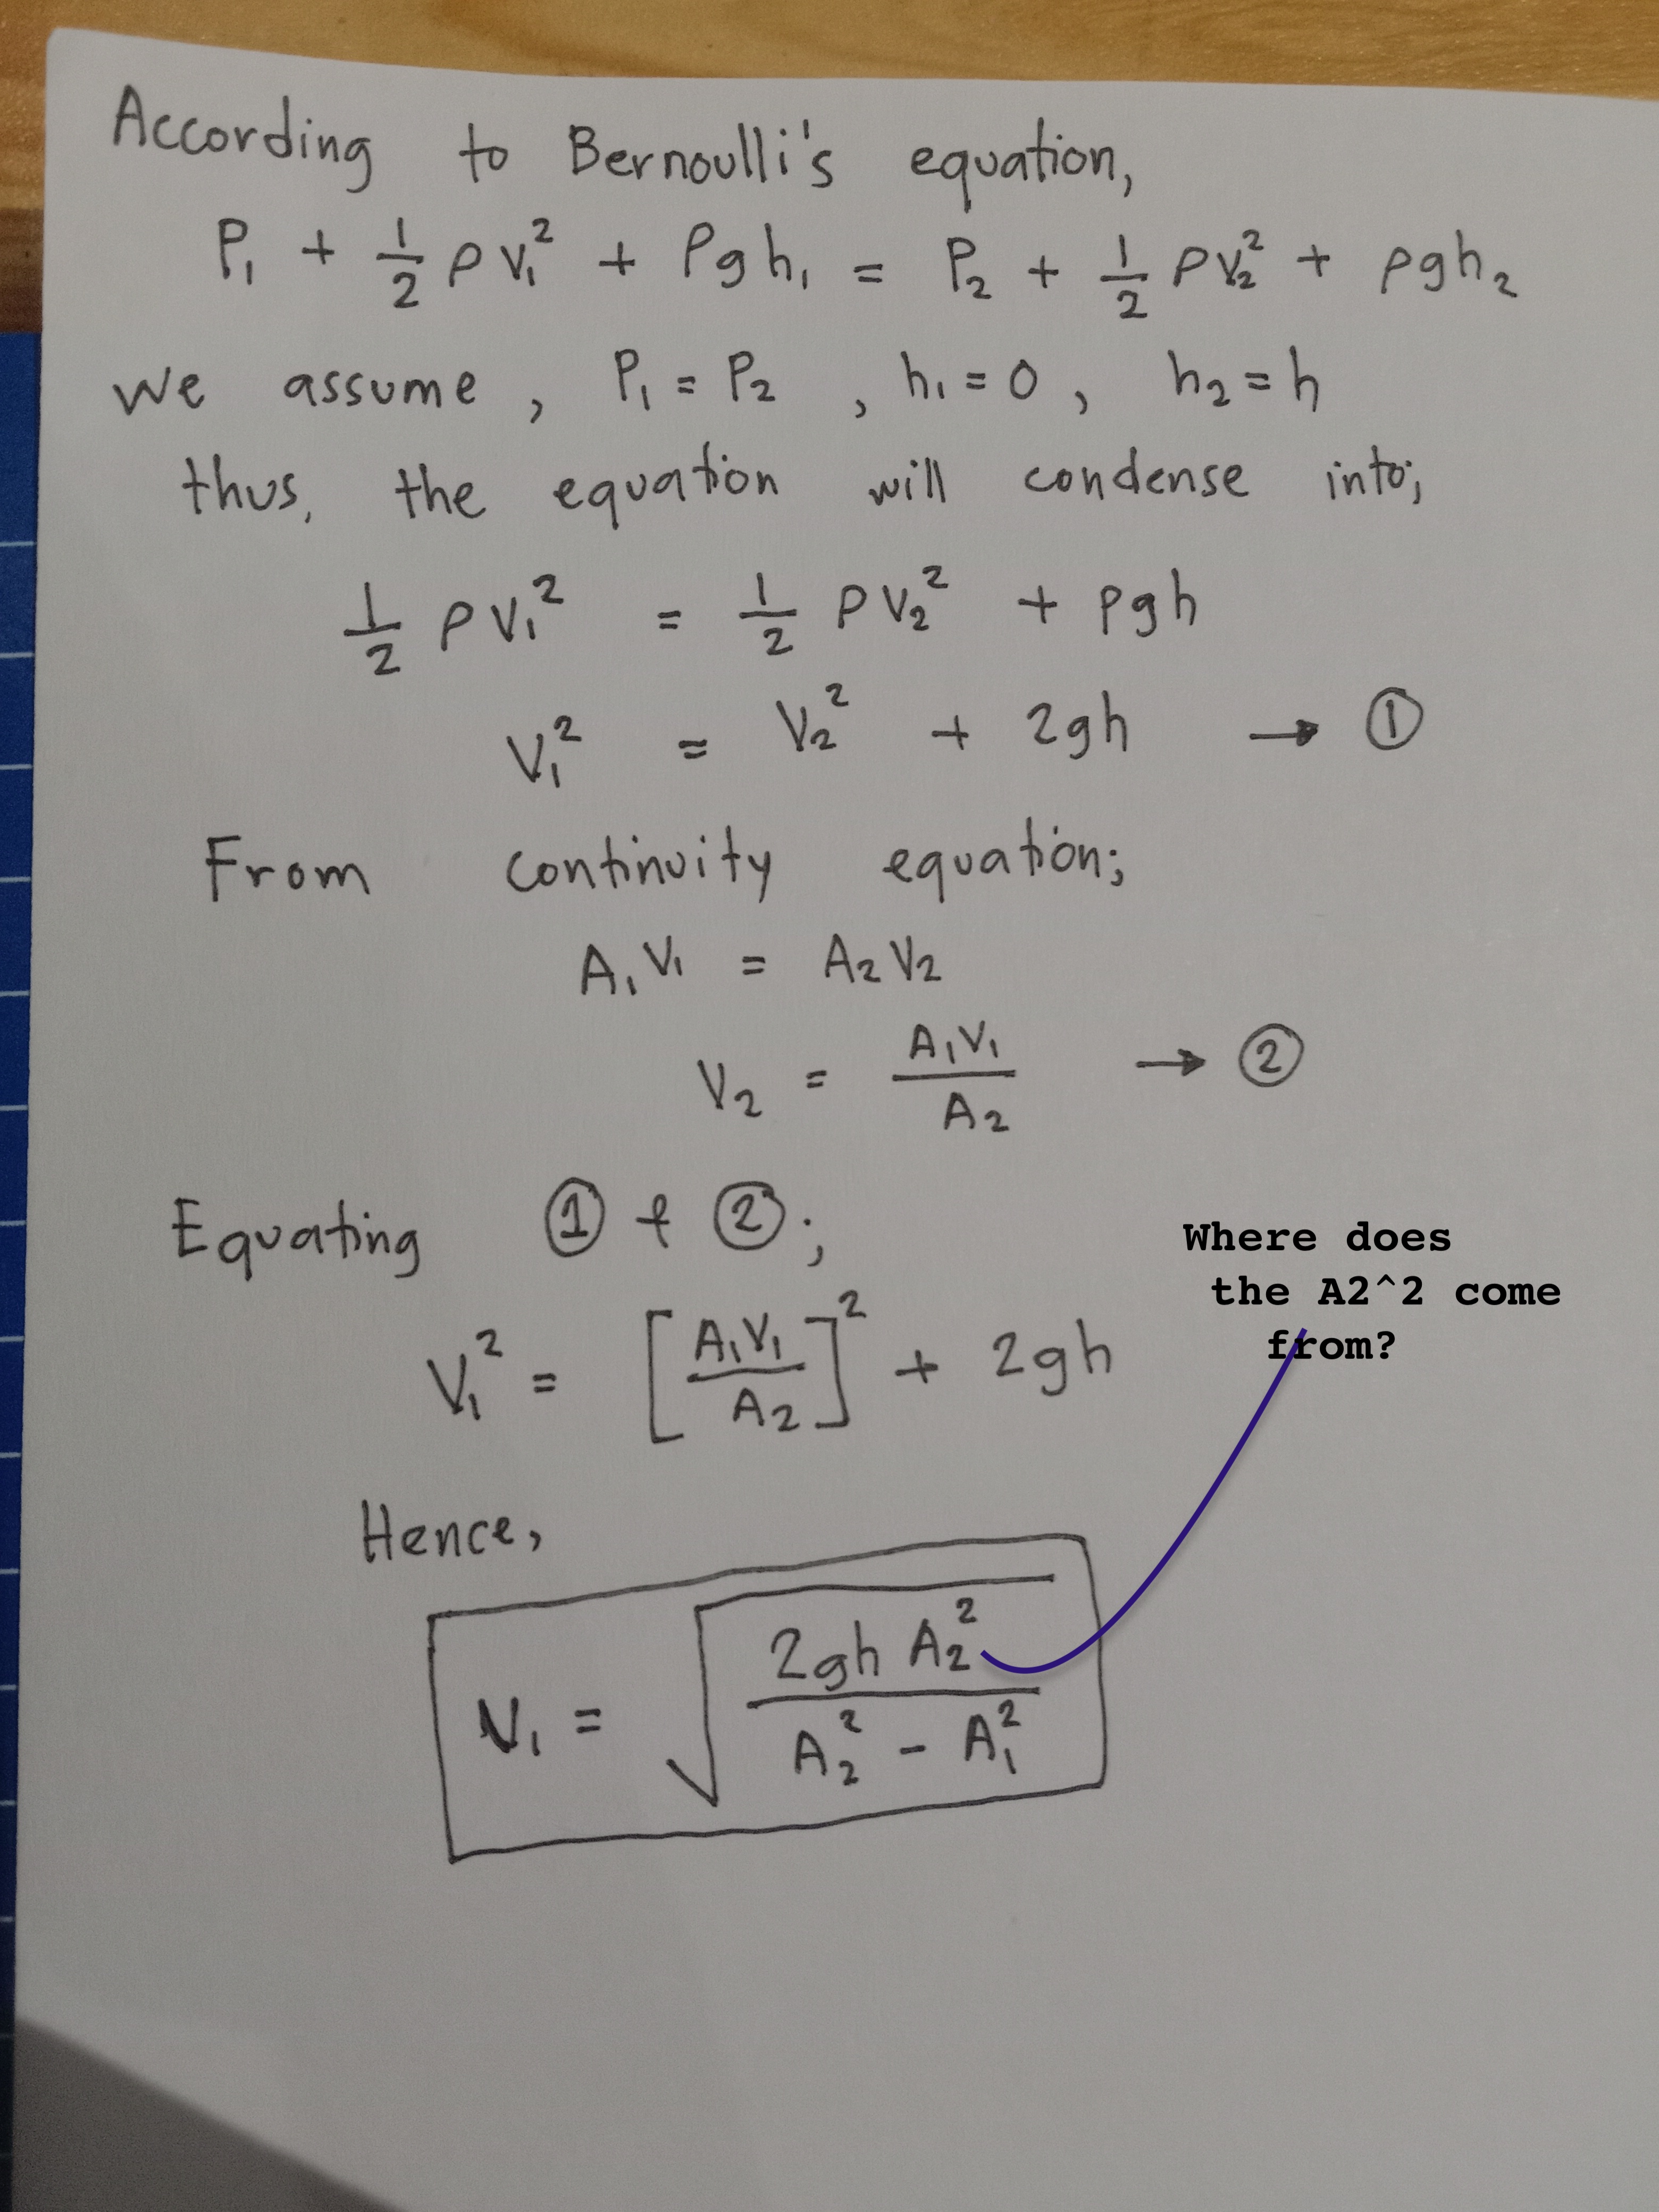 According to Bernoulli's equation,
P₁ + 1/2 ρ v₁² + ρgh₁ = P₂ + 1/2 ρv₂² + ρgh₂
we assume, P₁ = P₂, h₁ = 0, h₂ = h
thus, the equation will condense into;
1/2 ρ v₁² = 1/2 ρ v₂² + ρgh
v₁² = v₂² + 2gh → ①
From continuity equation;
A₁ v₁ = A₂ v₂
v₂ = A₁v₁/A₂ → ②
Equating ① & ②;
v₁² = [A₁v₁/A₂]² + 2gh
Where does
the A2^2 come
from?
Hence,
v₁ = √(2gh A₂²/(A₂² - A₁²))